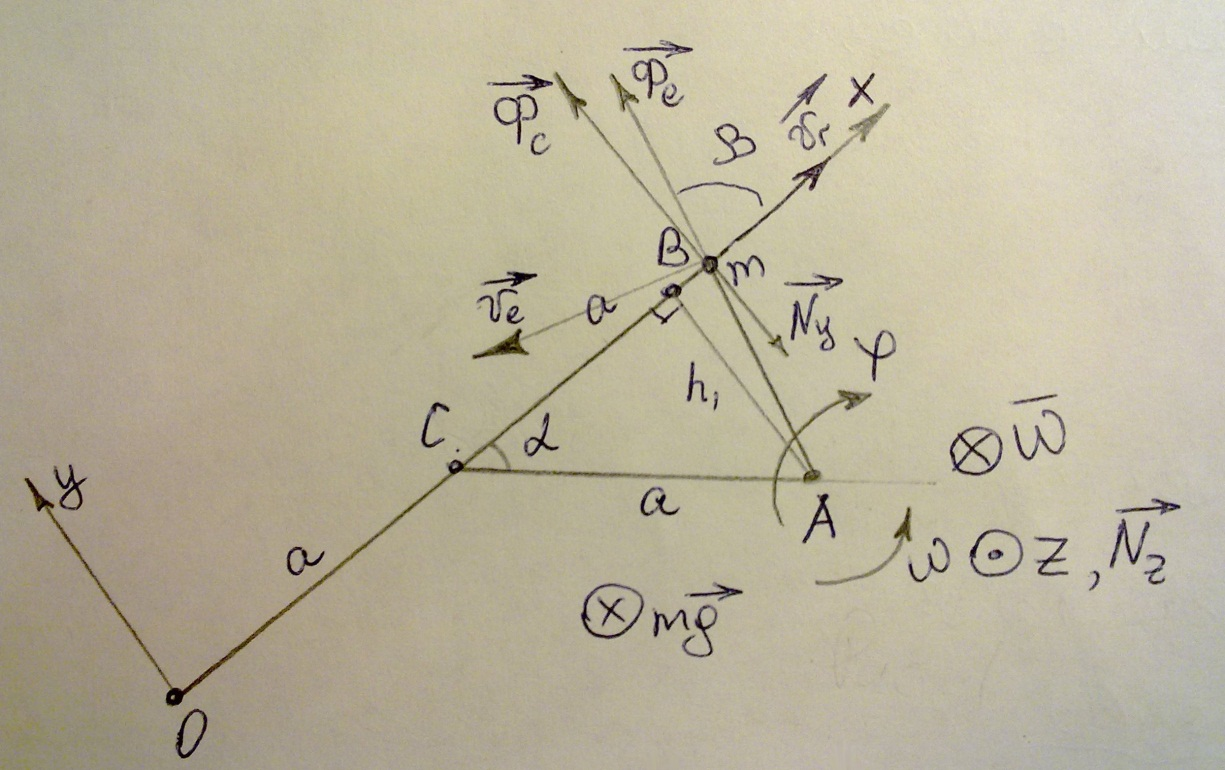 Φc
Φe
β
vr
x
B
m
ve
a
Ny
h₁
φ
C
α
ω̅
y
a
A
a
ω ⊙ z, Nz
⊗ mg
O